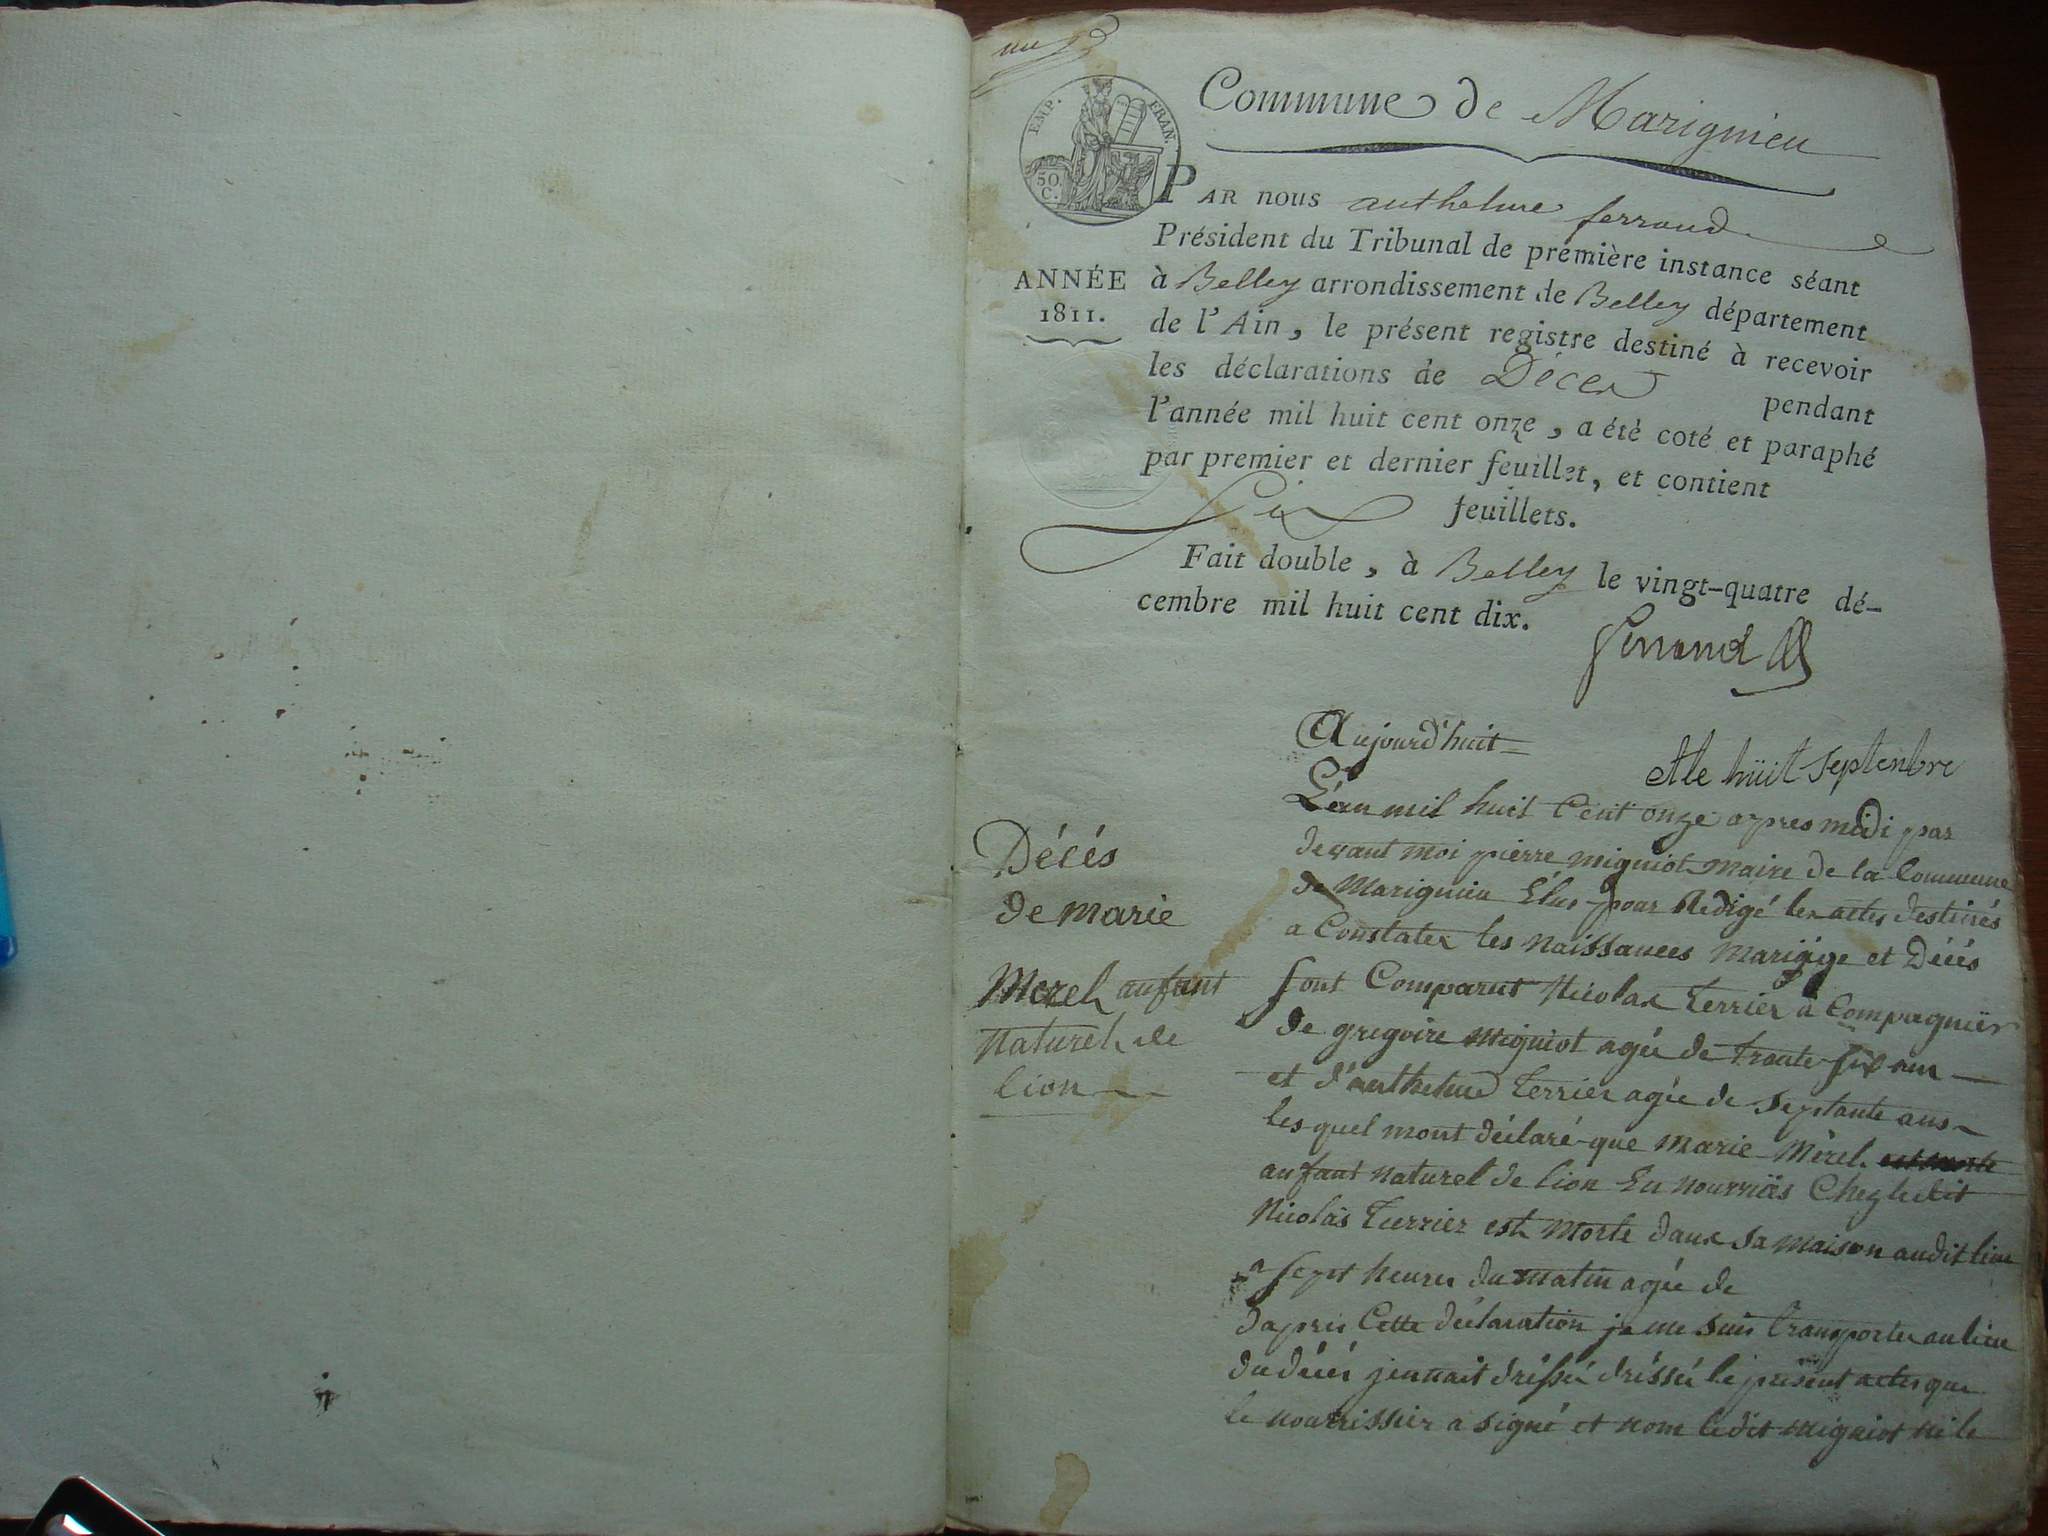 EMP. FRAN.
50 C.
Commune de Marignieu
ANNÉE
1811.
PAR nous anthelme ferrand
Président du Tribunal de première instance séant
à Belley arrondissement de Belley département
de l'Ain, le présent registre destiné à recevoir
les déclarations de Décès pendant
l'année mil huit cent onze, a été coté et paraphé
par premier et dernier feuillet, et contient
Six feuillets.
Fait double, à Belley le vingt-quatre dé-
cembre mil huit cent dix.
Ferrand
Décés
de marie
Merel anfant
Naturel de
lion
Aujourd'huit
le huit Septenbre
L'an mil huit Cent onze apres midi par
devant moi pierre migniot maire de la Commune
de Marignieu Elus pour Redigé les actes destinés
a Constater les Naissances Mariage et Décés
sont Comparut Nicolas terrier a Compagnier
de gregoire Migniot agée de trante six ans
et d'anthelme terrier agée de Septante ans
les quel mont déclaré que Marie Mérel. est morte
anfant Naturel de lion En nourrias Chez ledit
Nicolas terrier est Morte dans sa maison audit lieu
a sept heures du matin agée de
dapres Cette déclaration je me suis transporter au lieu
du décés jennait dréssé dréssé le présent actes que
le nourrissier a signé et nom ledit migniot ni le